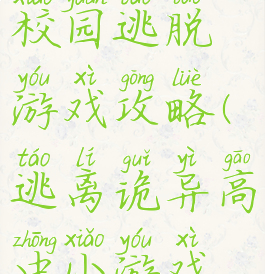 xiào yuán táo tuō
校园逃脱
yóu xì gōng lüè
游戏攻略(
táo lí guǐ yì gāo
逃离诡异高
zhōng xiǎo yóu xì
中小游戏